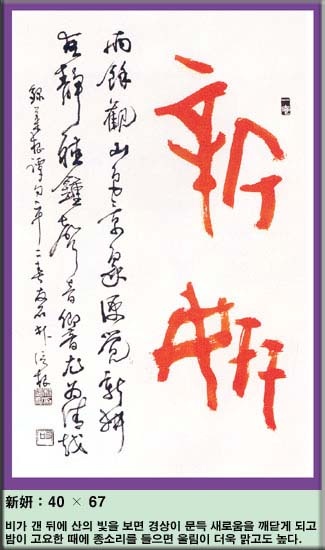 新姸
雨餘觀山色景象便覺新姸
夜靜聽鐘聲音響尤爲淸越
錄菜根譚句
新姸 : 40 × 67
비가 갠 뒤에 산의 빛을 보면 경상이 문득 새로움을 깨닫게 되고
밤이 고요한 때에 종소리를 들으면 울림이 더욱 맑고도 높다.